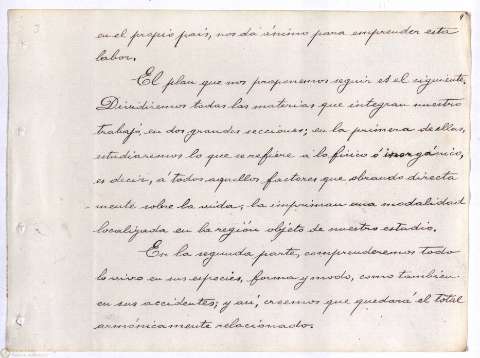 en el propio país, nos da ánimo para emprender esta
labor.
El plan que nos proponemos seguir es el siguiente.
Dividiremos todas las materias que integran nuestro
trabajo, en dos grandes secciones; en la primera de ellas,
estudiaremos lo que se refiere a lo físico é inorgánico,
es decir, a todos aquellos factores que obrando directa
mente sobre la vida, la impriman una modalidad
localizada en la región objeto de nuestro estudio.
En la segunda parte, comprenderemos todo
lo vivo en sus especies, forma y modo, como tambien
en sus accidentes; y así, creemos que quedará el total
armónicamente relacionado.